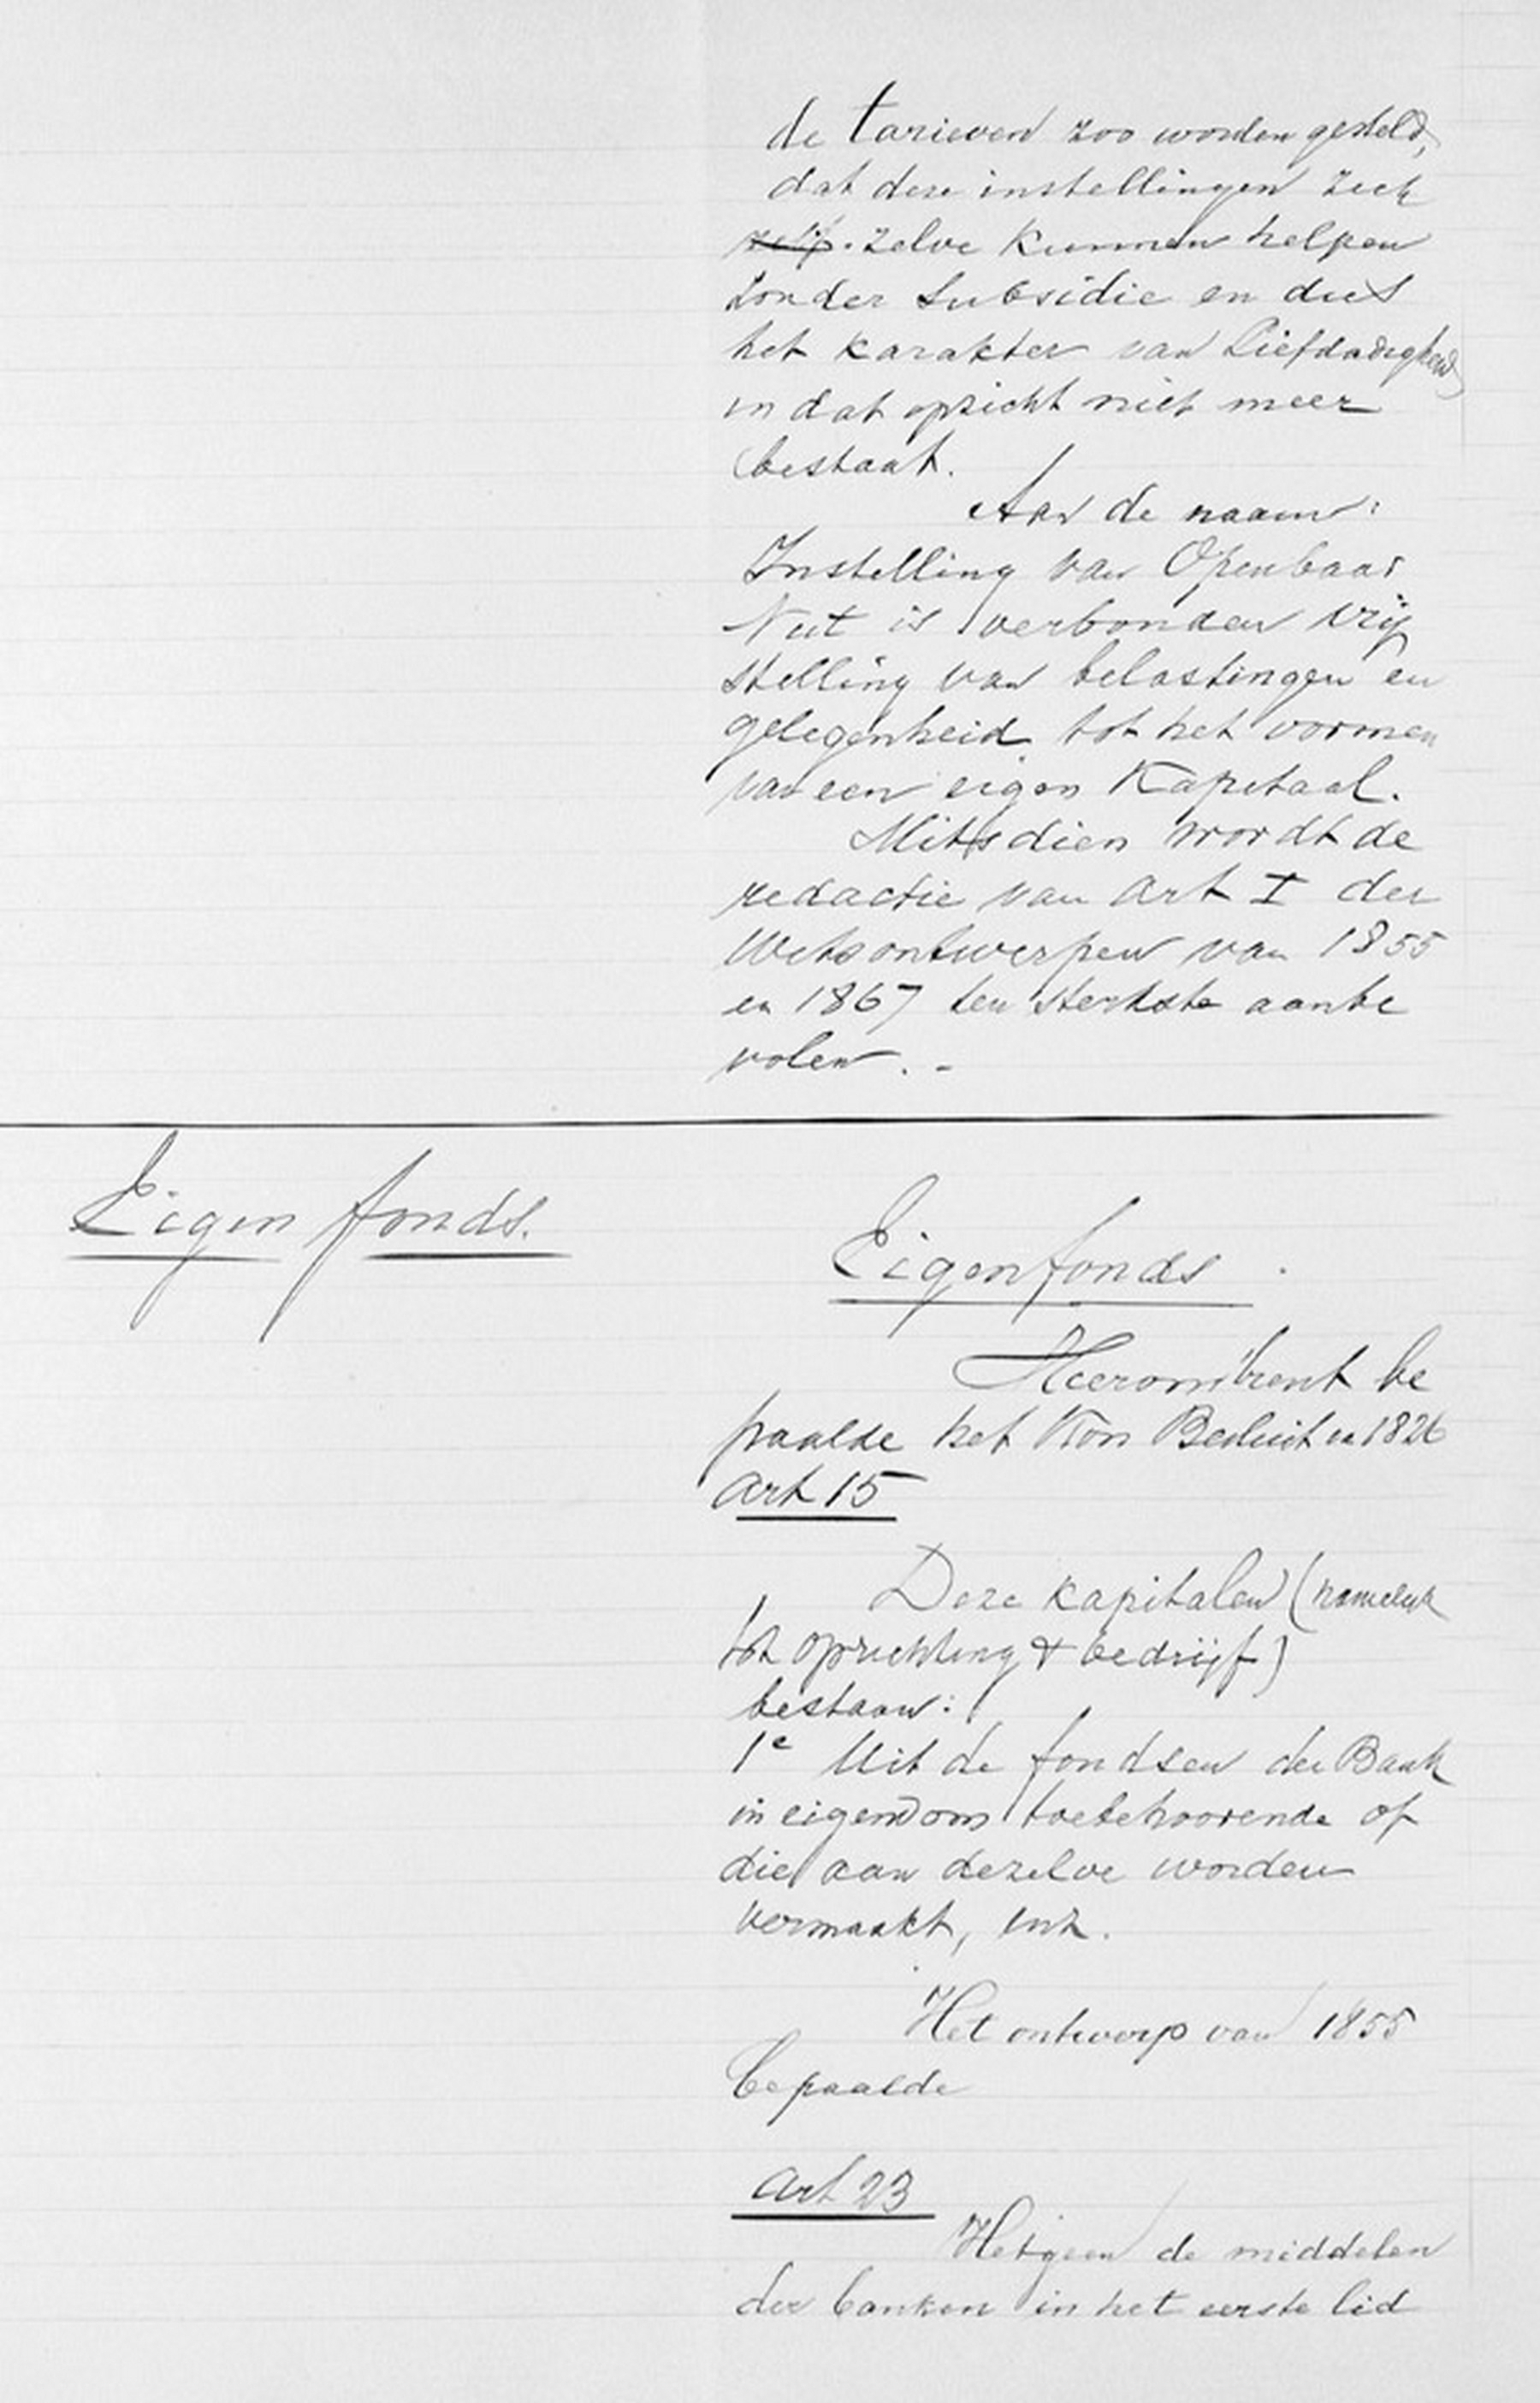 de tarieven zoo worden gesteld,
dat deze instellingen zich
zelf. zelve kunnen helpen
zonder Subsidie en dus
het karakter van Liefdadigheid
in dat opzicht niet meer
bestaat.
Aan de naam:
Instelling van Openbaar
Nut is verbonden vrij
stelling van belastingen en
gelegenheid tot het vormen
van een eigen Kapitaal.
Mitsdien wordt de
redactie van Art I der
Wetsontwerpen van 1855
en 1867 ten sterkste aanbe
volen. -
Eigen fonds.
Eigen fonds.
Hieromtrent be
paalde het Kon Besluit va 1826
Art 15
Deze kapitalen (namelijk
tot oprichting & bedrijf)
bestaan:
1e Uit de fondsen der Bank
in eigendom toebehoorende of
die aan dezelve worden
vermaakt, enz.
Het ontwerp van 1855
bepaalde
Art 23
Hetgeen de middelen
der banken in het eerste lid